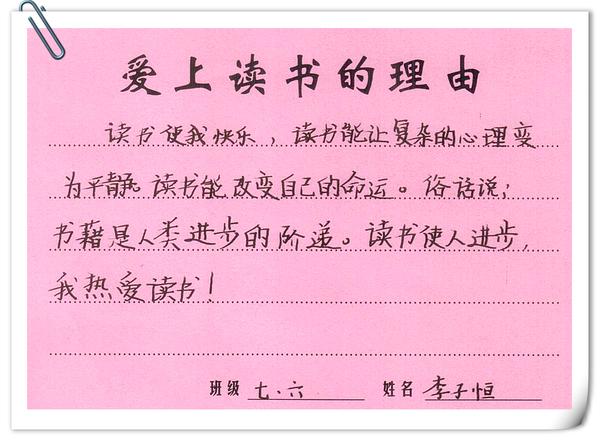 爱上读书的理由
读书使我快乐，读书能让复杂的心理变
为平静。读书能改变自己的命运。俗话说：
书藉是人类进步的阶递。读书使人进步，
我热爱读书！
班级 七.六 姓名 李子恒